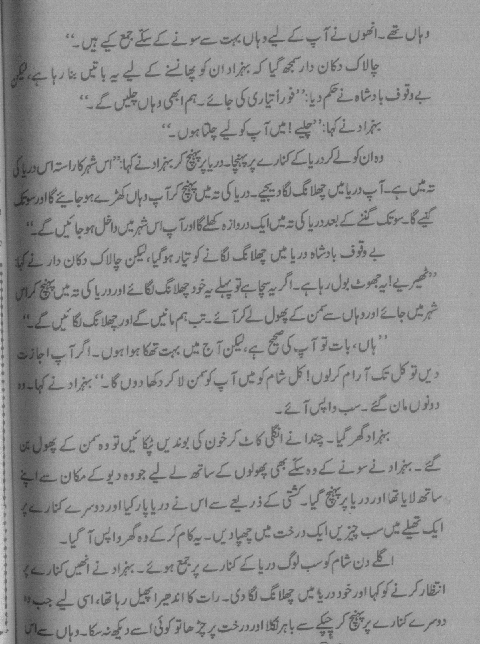 وہاں تھے۔ انھوں نے آپ کے لیے وہاں بہت سے سونے کے سکّے جمع کیے ہیں۔‘‘
چالاک دکان دار سمجھ گیا کہ بہزاد ان کو پھانسنے کے لیے یہ باتیں بنا رہا ہے، لیکن
بے وقوف بادشاہ نے حکم دیا: ’’فوراً تیاری کی جائے۔ ہم ابھی وہاں چلیں گے۔‘‘
بہزاد نے کہا: ’’چلیے! میں آپ کو لیے چلتا ہوں۔‘‘
وہ ان کو لے کر دریا کے کنارے پر پہنچا۔ دریا پر پہنچ کر بہزاد نے کہا: ’’اس شہر کا راستہ اس دریا کی
تہ میں ہے۔ آپ دریا میں چھلانگ لگا دیجیے۔ دریا کی تہ میں پہنچ کر آپ وہاں کھڑے ہو جایئے گا اور سو تک
گنیے گا۔ سو تک گننے کے بعد دریا کی تہ میں ایک دروازہ کھلے گا اور آپ اس شہر میں داخل ہو جائیں گے۔‘‘
بے وقوف بادشاہ دریا میں چھلانگ لگانے کو تیار ہو گیا، لیکن چالاک دکان دار نے کہا:
’’ٹھیریے! یہ جھوٹ بول رہا ہے۔ اگر یہ سچا ہے تو پہلے یہ خود چھلانگ لگائے اور دریا کی تہ میں پہنچ کر اس
شہر میں جائے اور وہاں سے سمن کے پھول لے کر آئے۔ تب ہم مانیں گے اور چھلانگ لگائیں گے۔‘‘
’’ہاں، بات تو آپ کی صحیح ہے، لیکن آج میں بہت تھکا ہوا ہوں۔ اگر آپ اجازت
دیں تو کل تک آرام کر لوں! کل شام کو میں آپ کو سمن لا کر دکھا دوں گا۔‘‘ بہزاد نے کہا۔ وہ
دونوں مان گئے۔ سب واپس آئے۔
بہزاد گھر گیا۔ چندا نے انگلی کاٹ کر خون کی بوندیں ٹپکائیں تو وہ سمن کے پھول بن
گئے۔ بہزاد نے سونے کے وہ سکّے بھی پھولوں کے ساتھ لے لیے جو وہ دیو کے مکان سے اپنے
ساتھ لایا تھا اور دریا پر پہنچ گیا۔ کشتی کے ذریعے سے اس نے دریا پار کیا اور دوسرے کنارے پر
ایک تھیلے میں سب چیزیں ایک درخت میں چھپا دیں۔ یہ کام کر کے وہ گھر واپس آ گیا۔
اگلے دن شام کو سب لوگ دریا کے کنارے پر جمع ہوئے۔ بہزاد نے انھیں کنارے پر
انتظار کرنے کو کہا اور خود دریا میں چھلانگ لگا دی۔ رات کا اندھیرا پھیل رہا تھا، اسی لیے جب وہ
دوسرے کنارے پر پہنچ کر چپکے سے باہر نکلا اور درخت پر چڑھا تو کوئی اسے دیکھ نہ سکا۔ وہاں سے اس